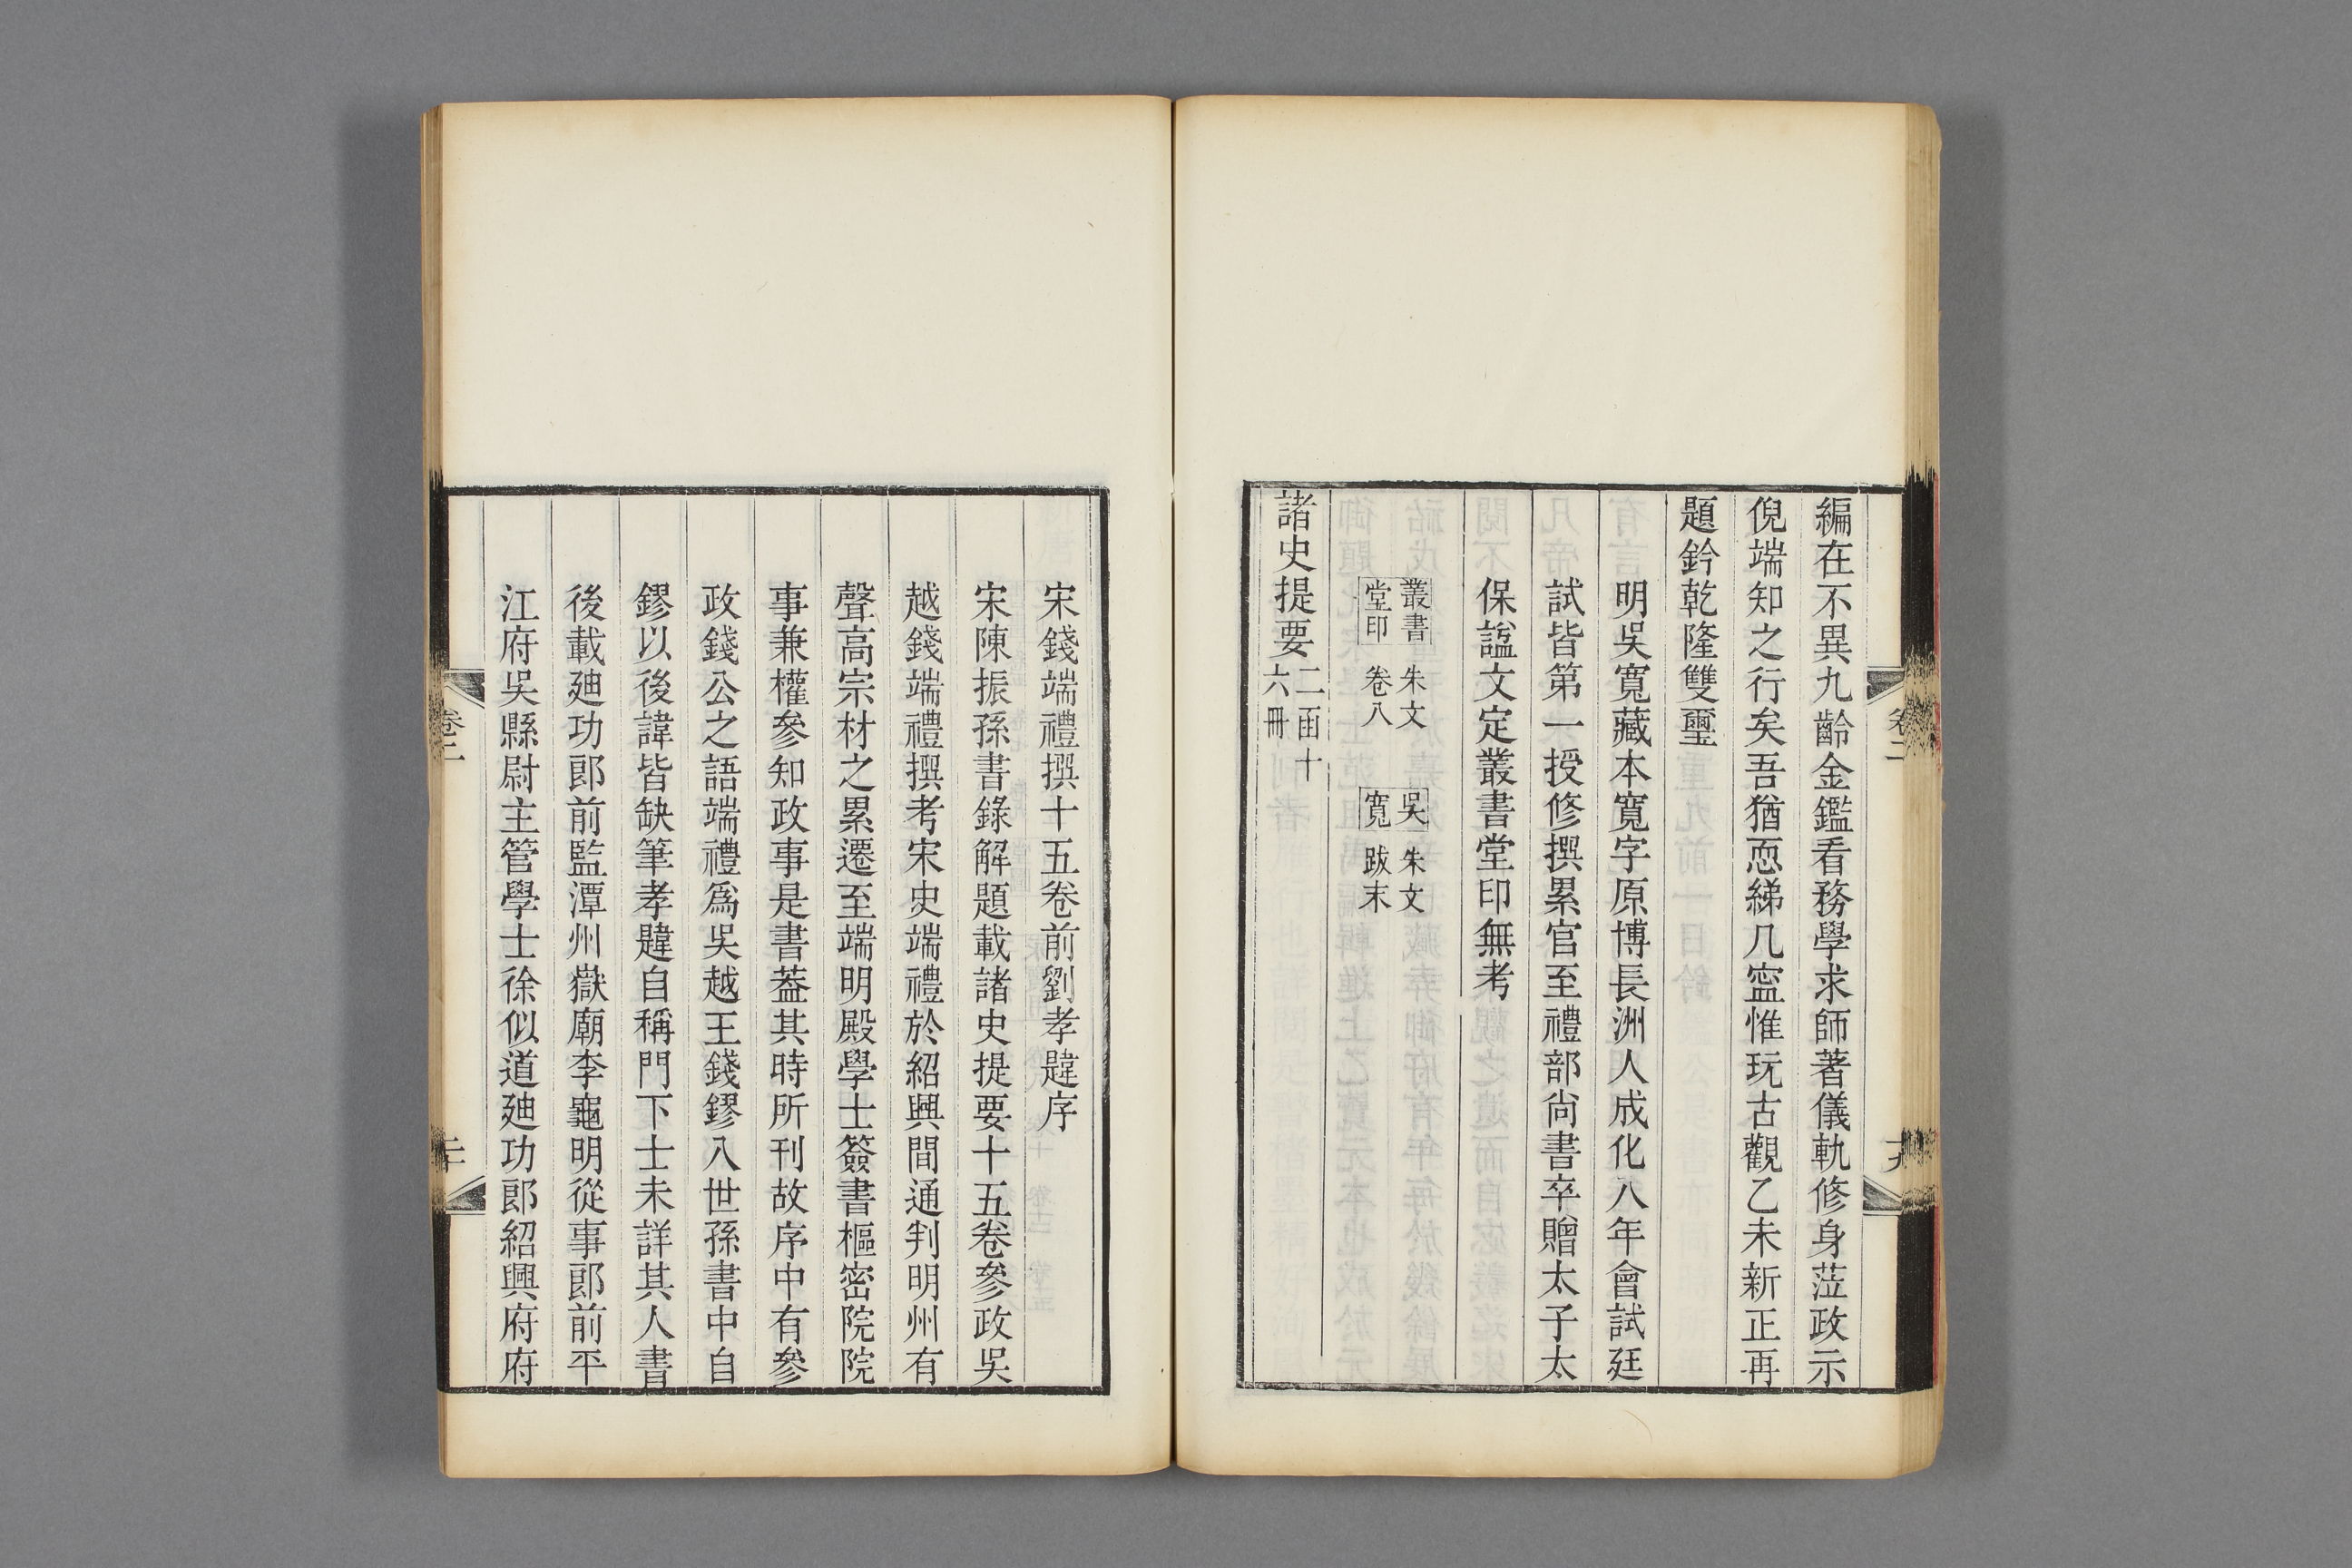 編在不異九齡金鑑看務學求師著儀軌修身蒞政示
倪端知之行矣吾猶恧綈几寍惟玩古觀乙未新正再
題鈐乾隆雙璽
明吳寬藏本寬字原博長洲人成化八年會試廷
試皆第一授修撰累官至禮部尚書卒贈太子太
保諡文定叢書堂印無考
叢書
堂印
朱文
卷八
吳
寬
朱文
跋末
諸史提要
二函十
六冊
卷二
十九
宋錢端禮撰十五卷前劉孝韙序
宋陳振孫書錄解題載諸史提要十五卷參政吳
越錢端禮撰考宋史端禮於紹興間通判明州有
聲高宗材之累遷至端明殿學士簽書樞密院院
事兼權參知政事是書葢其時所刊故序中有參
政錢公之語端禮為吳越王錢鏐八世孫書中自
鏐以後諱皆缺筆孝韙自稱門下士未詳其人書
後載廸功郎前監潭州嶽廟李龜明從事郎前平
江府吳縣尉主管學士徐似道廸功郎紹興府府
卷二
二十